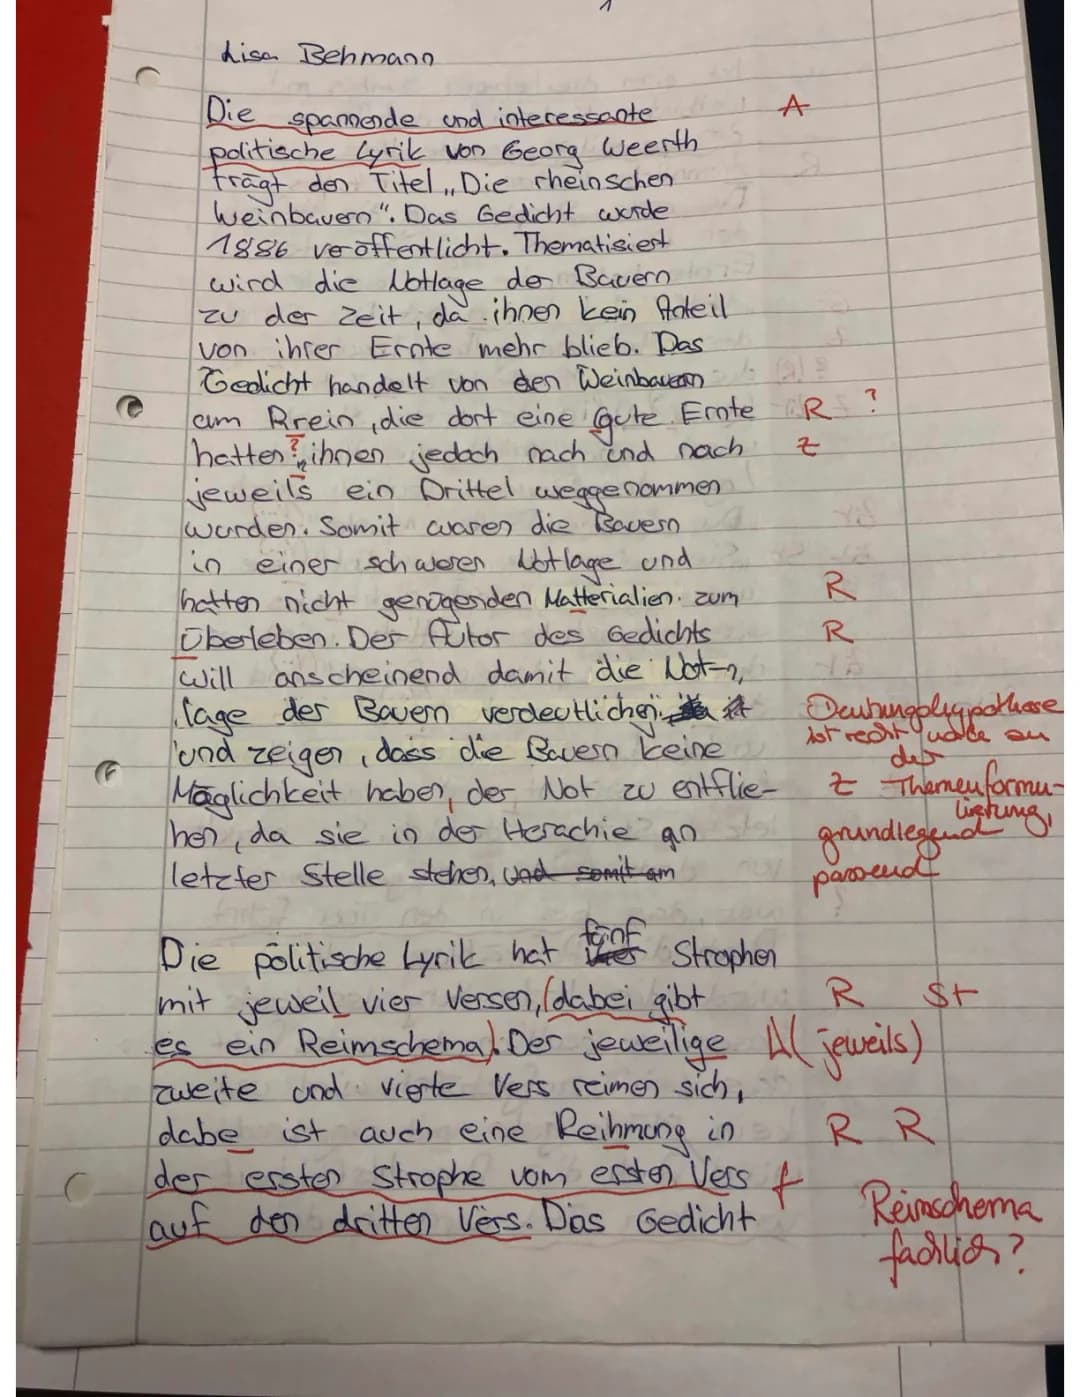 1
Lisa Behmann
Die spannende und interessante A
politische Lyrik von Georg Weerth
trägt den Titel „Die rheinschen
Weinbauern". Das Gedicht wurde
1886 veröffentlicht. Thematisiert
wird die Notlage der Bauern
zu der Zeit, da ihnen kein Anteil
von ihrer Ernte mehr blieb. Das
Gedicht handelt von den Weinbauern
am Rrein, die dort eine gute Ernte R ?
hatten?, ihnen jedoch nach und nach Z
jeweils ein Drittel weggenommen
wurden. Somit waren die Bauern
in einer schweren Notlage und
hatten nicht genügenden Matterialien zum R
Überleben. Der Autor des Gedichts R
will anscheinend damit die Not-
lage der Bauern verdeutlichen Deutungshypothese
ist recht nahe an
und zeigen, dass die Bauern keine der
Möglichkeit haben, der Not zu entflie- Z Themenformu-
lierung,
hen, da sie in der Herachie an grundlegend
letzter Stelle stehen, und somit am passend
fünf
Die politische Lyrik hat vier Strophen
mit jeweil vier Versen, (dabei gibt R St
es ein Reimschema). Der jeweilige A (jeweils)
zweite und vierte Vers reimen sich,
dabe ist auch eine Reihmung in R R
der ersten Strophe vom ersten Vers f
auf den dritten Vers. Das Gedicht Reimschema
fachlich?